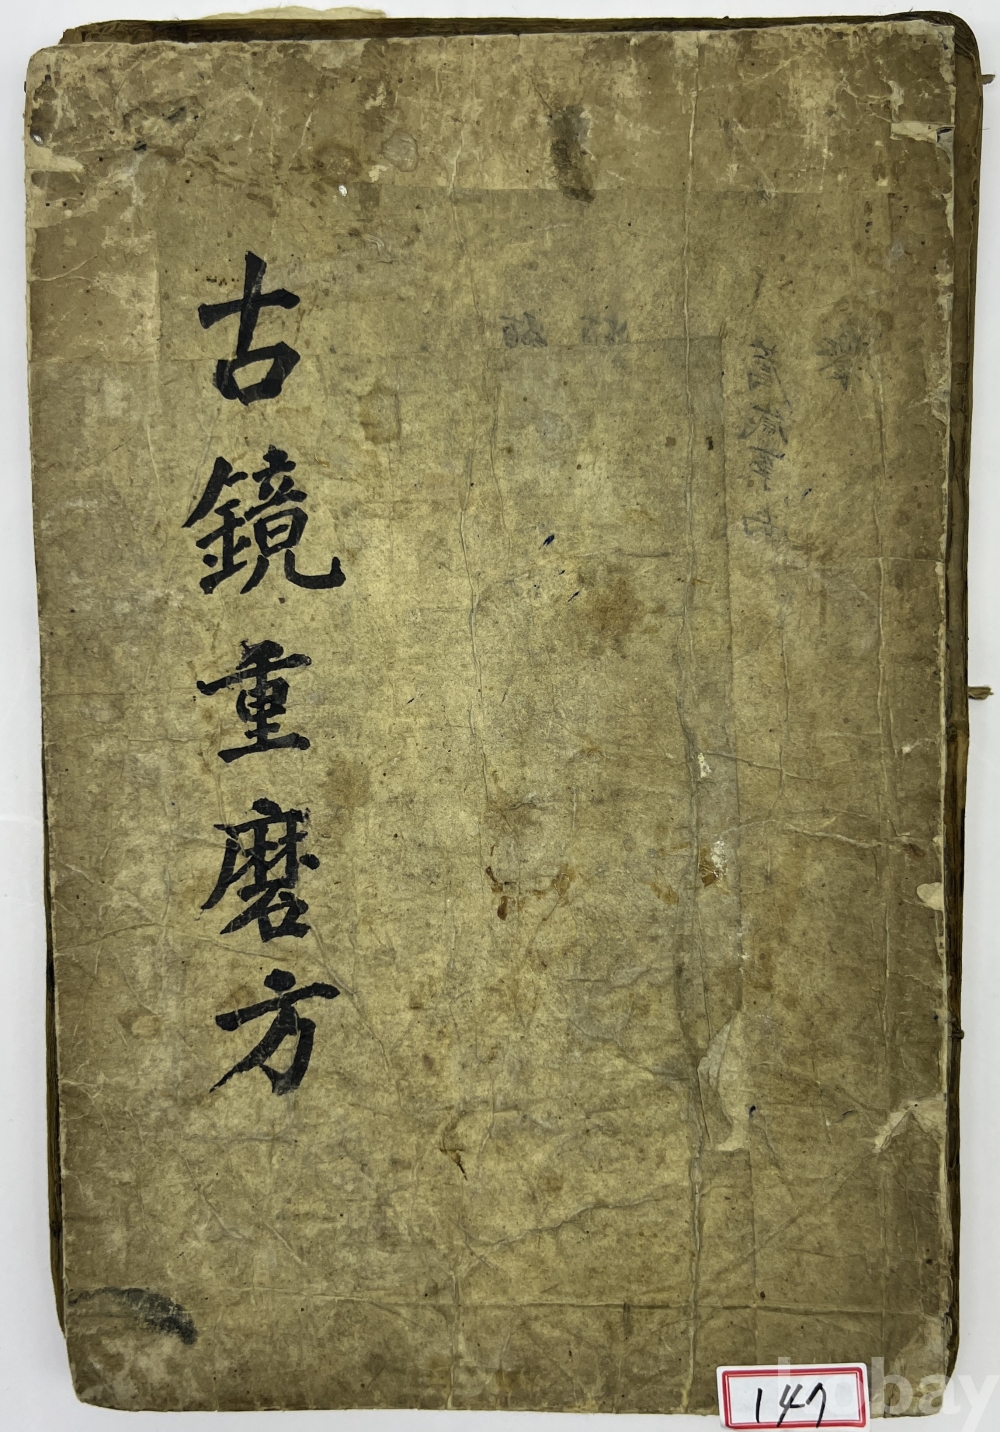 古鏡重磨方
147
kobay